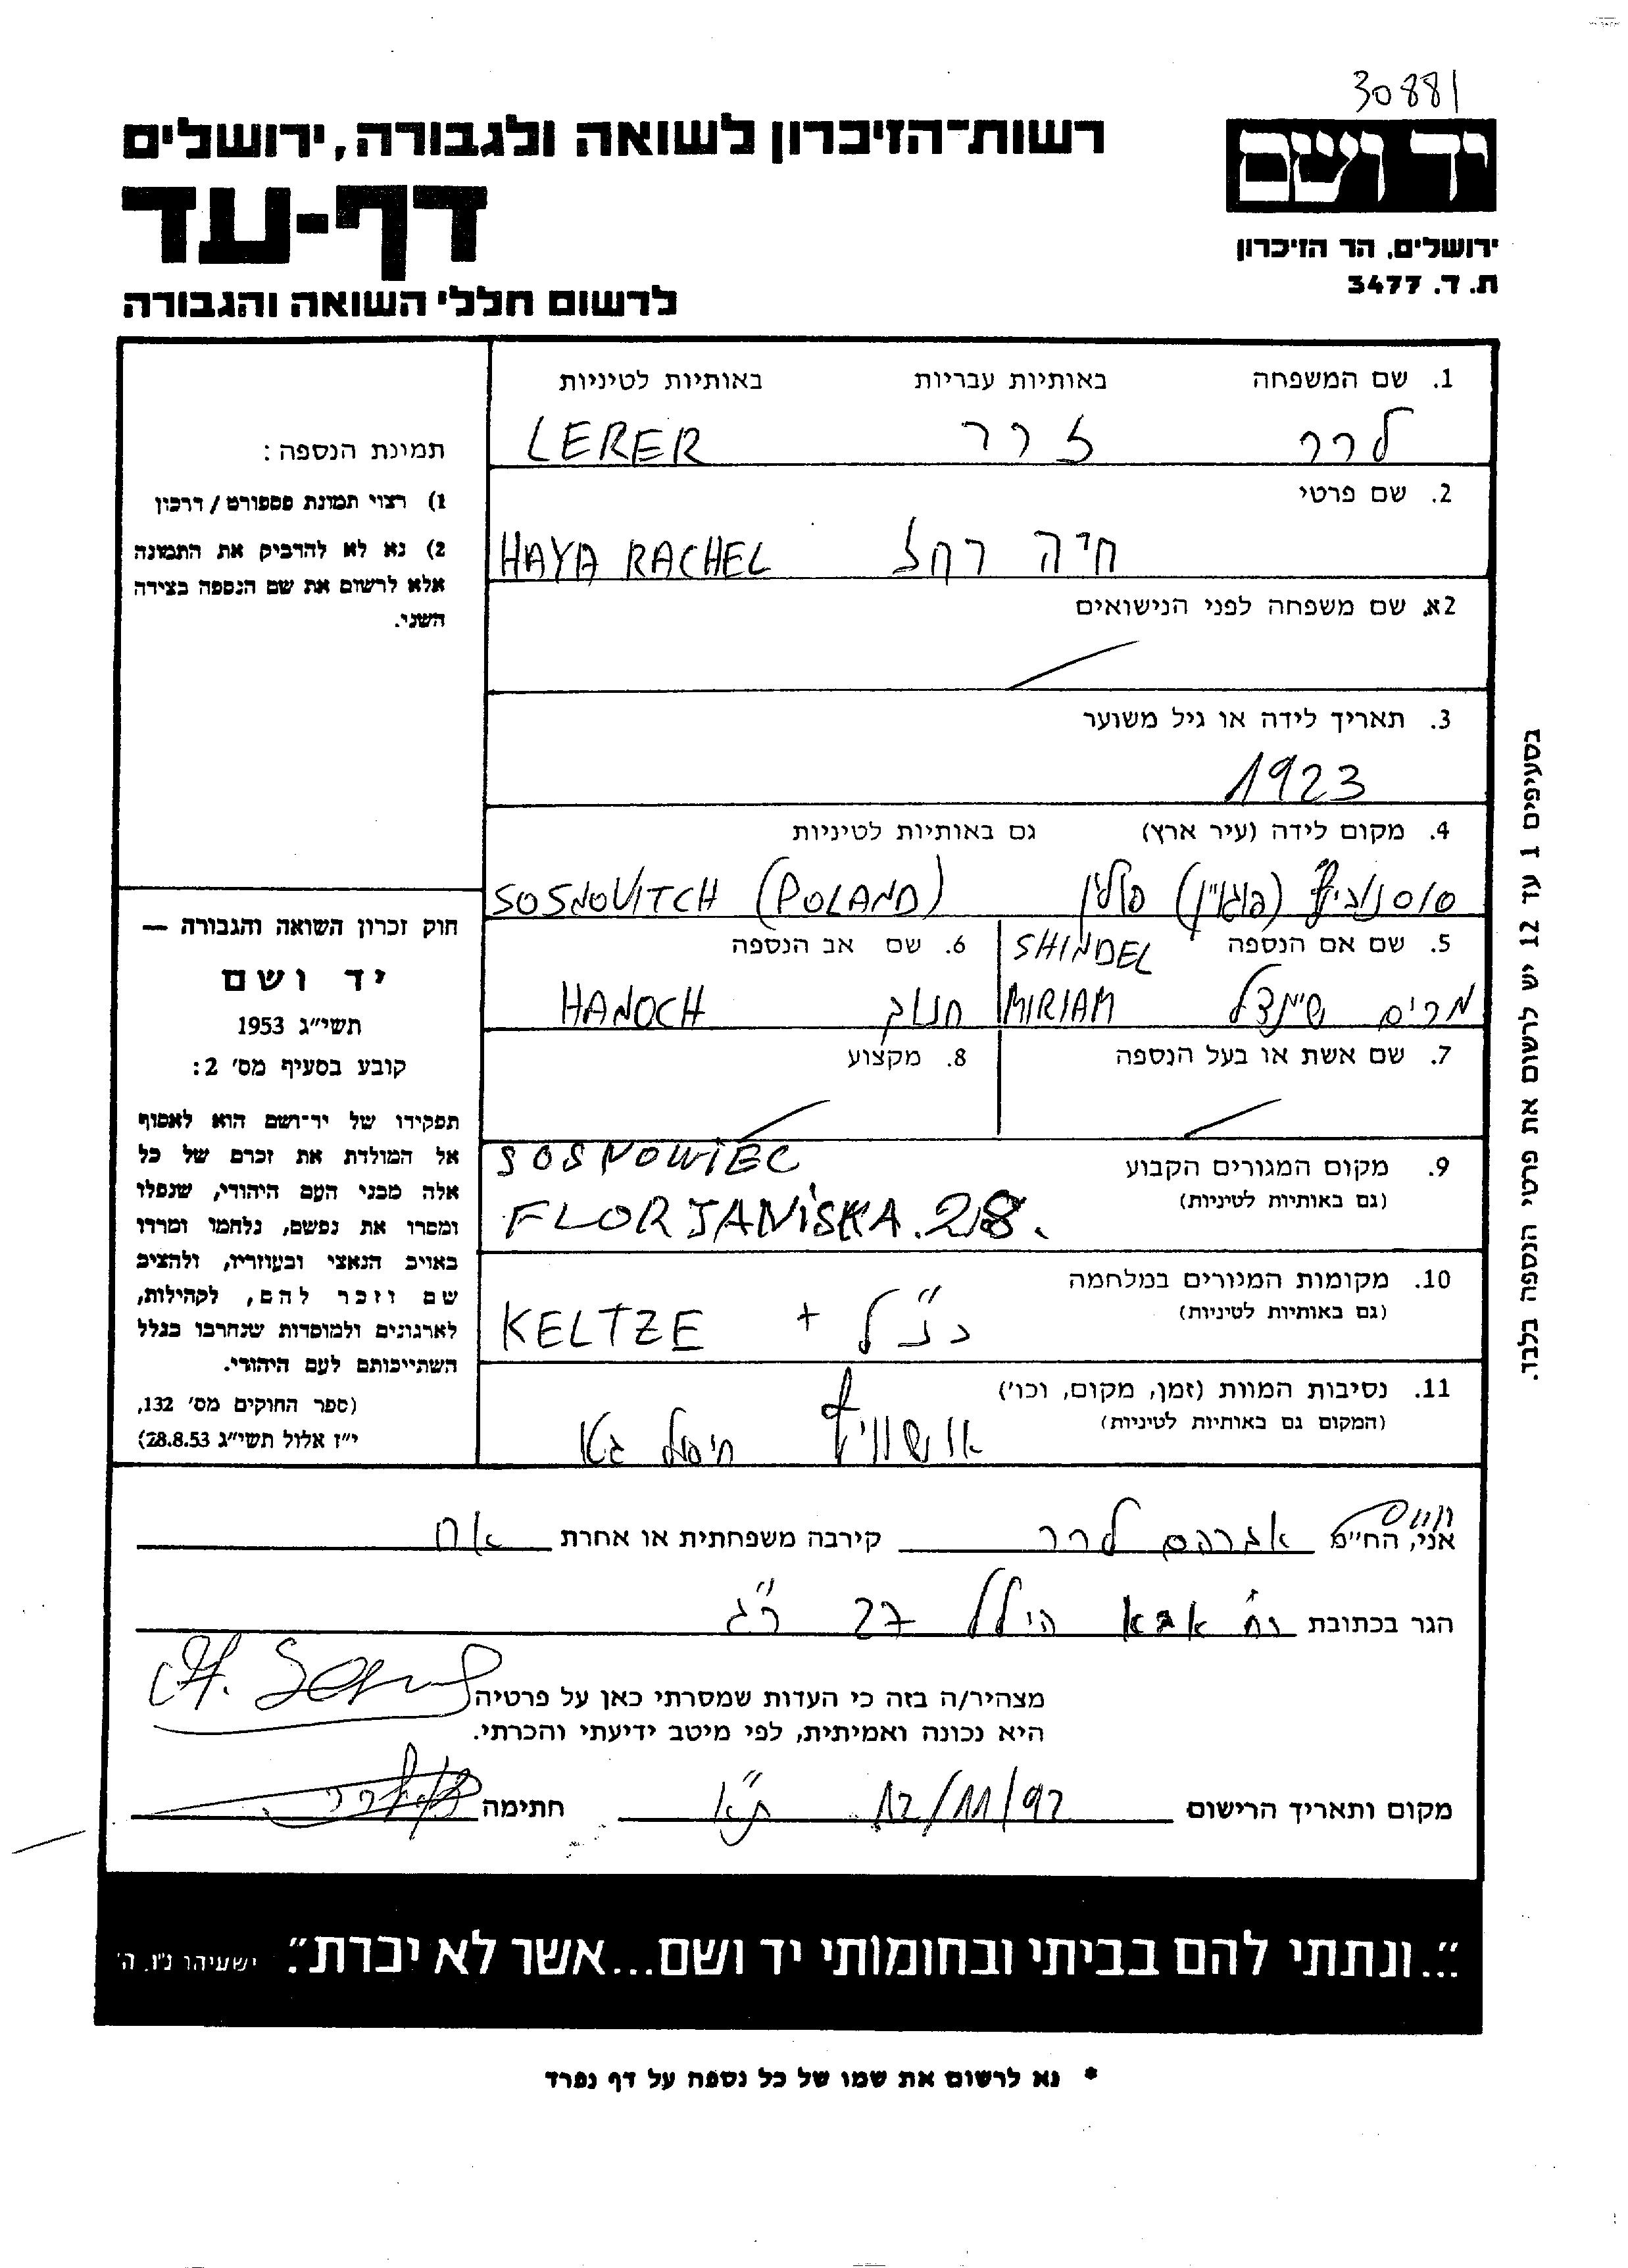 30881
יד ושם
רשות-הזיכרון לשואה ולגבורה, ירושלים
דף-עד
ירושלים. הר הזיכרון
ת. ד. 3477
לרשום חללי השואה והגבורה
1. שם המשפחה באותיות עבריות באותיות לטיניות
לרר לרר LERER
2. שם פרטי
חיה רחל HAYA RACHEL
2א. שם משפחה לפני הנישואים
3. תאריך לידה או גיל משוער
1923
4. מקום לידה (עיר ארץ) גם באותיות לטיניות
פולין SOSNOVITCH (POLAND)
5. שם אם הנספה SHINDEL
מרים שינדל MIRIAM
6. שם אב הנספה
חנוך HANOCH
7. שם אשת או בעל הנספה
8. מקצוע
9. מקום המגורים הקבוע
(גם באותיות לטיניות)
SOSNOWIEC
FLORJANISKA. 28.
10. מקומות המגורים במלחמה
(גם באותיות לטיניות)
כנ"ל + KELTZE
11. נסיבות המוות (זמן, מקום, וכו')
(המקום גם באותיות לטיניות)
אושוויץ חיסול גטו
תמונת הנספה:
1) רצוי תמונת פספורט / דרכון
2) נא לא להדביק את התמונה
אלא לרשום את שם הנספה בצידה
השני.
חוק זכרון השואה והגבורה —
יד ושם
תשי"ג 1953
קובע בסעיף מס' 2:
תפקידו של יד-ושם הוא לאסוף
אל המולדת את זכרם של כל
אלה מבני העם היהודי, שנפלו
ומסרו את נפשם, נלחמו ומרדו
באויב הנאצי ובעוזריו, ולהציב
שם וזכר להם, לקהילות,
לארגונים ולמוסדות שנחרבו בגלל
השתייכותם לעם היהודי.
(ספר החוקים מס' 132,
י"ז אלול תשי"ג 28.8.53)
בסעיפים 1 עד 12 יש לרשום את פרטי הנספה בלבד.
אני, הח"מ אברהם לרר קירבה משפחתית או אחרת אח
הגר בכתובת רח' אבא הילל 27 ר"ג
מצהיר/ה בזה כי העדות שמסרתי כאן על פרטיה
היא נכונה ואמיתית, לפי מיטב ידיעתי והכרתי.
מקום ותאריך הרישום 12/11/92 ת"א חתימה
"...ונתתי להם בביתי ובחומותי יד ושם...אשר לא יכרת." ישעיהו נ"ו. ה'
* נא לרשום את שמו של כל נספה על דף נפרד